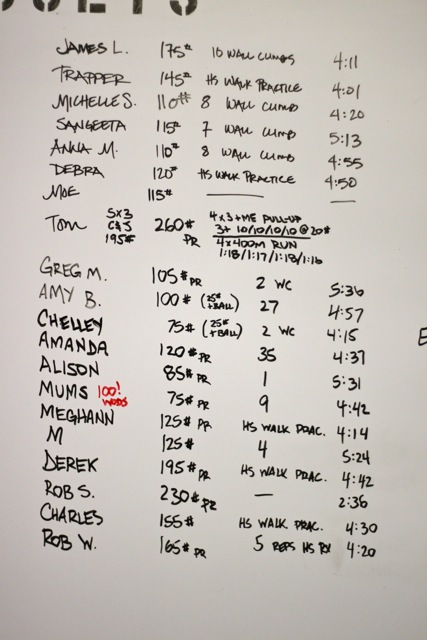 JAMES L. 175# 10 WALL CLIMBS 4:11
TRAPPER 145# HS WALK PRACTICE 4:01
MICHELLE S. 110# 8 WALL CLIMB 4:20
SANGEETA 115# 7 WALL CLIMB 5:13
ANNA M. 110# 8 WALL CLIMB 4:55
DEBRA 120# HS WALK PRACTICE 4:50
MOE 115# — —
TOM 5x3 C&J 195# 260# PR 4x3+ME PULL-UP
3+ 10/10/10/10 @ 20#
4x400M RUN
1:18/1:17/1:18/1:16
GREG M. 105# PR 2 WC 5:36
AMY B. 100# (25# +BALL) 27 4:57
CHELLEY 75# (25# +BALL) 2 WC 4:15
AMANDA 120# PR 35 4:37
ALISON 85# PR 1 5:31
MUMS 100! WODS 75# PR 9 4:42
MEGHANN 125# PR HS WALK PRAC. 4:14
M 125# 4 5:24
DEREK 195# PR HS WALK PRAC. 4:42
ROB S. 230# PR — 2:36
CHARLES 155# HS WALK PRAC. 4:30
ROB W. 165# PR 5 REPS HS RX 4:20